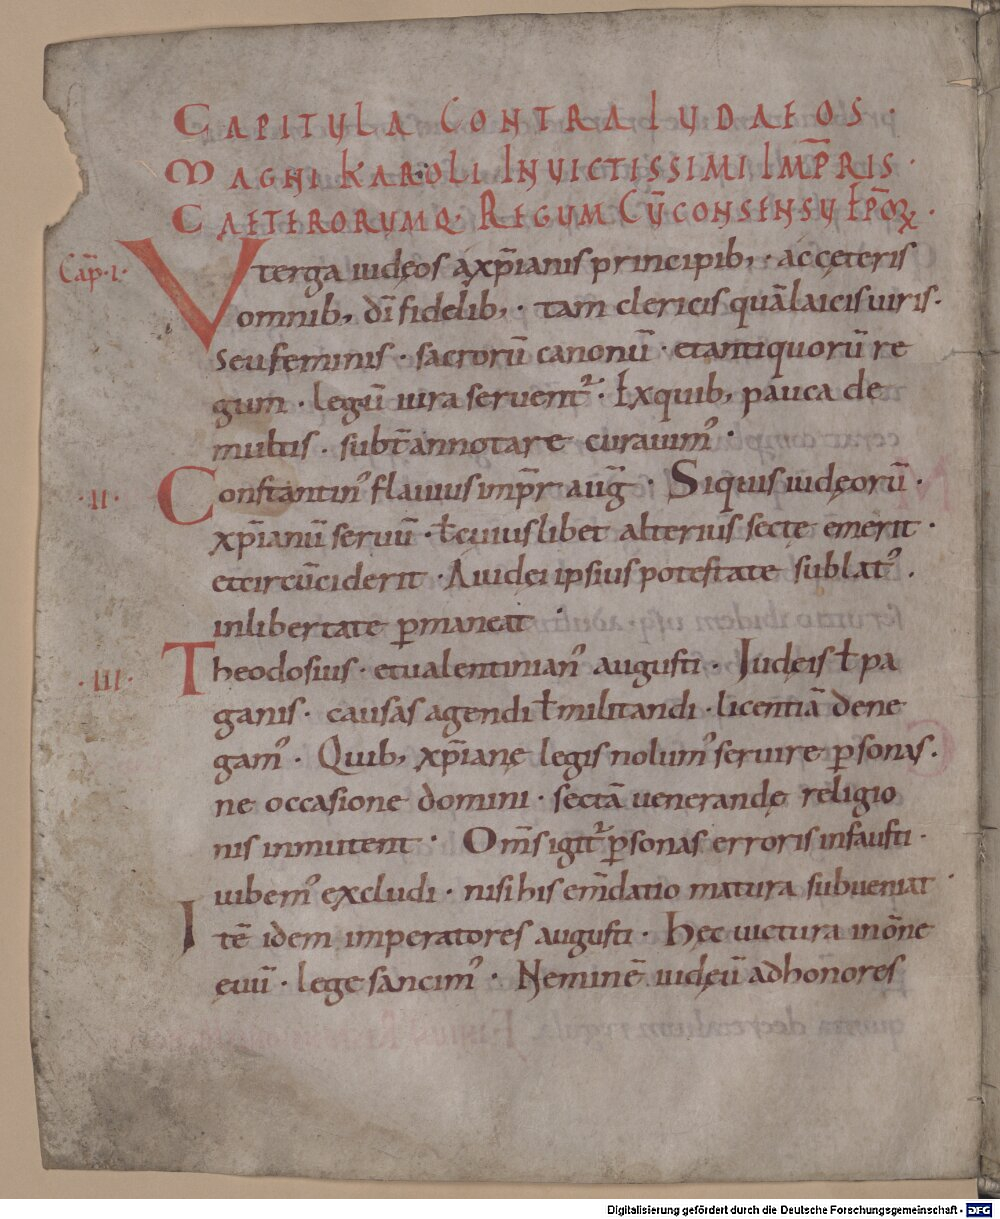 CAPITULA CONTRA IUDAEOS ·
MAGNI KAROLI INVICTISSIMI IMP̄RIS ·
CAETERORUMQ· REGUM CŪ CONSENSU EP̄OꝜ ·
Cap̄·I· Vt erga iudęos a xp̄ianis principib; · ac cęteris
omnib; dī fidelib; · tam clericis quā laicis uiris·
seu feminis · sacrorū canonū · et antiquorū re
gum · legū iura seruent᷑ · Ex quib; pauca de
multis · subt̄ annotare curauim᾿ ·
·II· Constantin᾿ flauius imp̄r aug̅ · Siquis iudęorū ·
xp̄ianū seruū · ł cuiuslibet alterius sectę ēmerit ·
et circūciderit · A iudęi ipsius potestate sublat᾿ ·
in libertate ꝑmaneat ·
·III· Theodosius · et ualentinian᾿ augusti · Iudęis ł pa
ganis · causas agendi ł militandi · licentiā dene
gam᾿ · Quib; xp̄ianę legis nolum᾿ seruire ꝑsonas ·
ne occasione domini · sectā uenerandę religio
nis inmutent · Om̄s igit᷑ ꝑsonas erroris infausti ·
iubem᾿ excludi · nisi his em̄datio matura subueniat ·
Itē idem imperatores augusti · Hęc uictura in ōne
ęuū · lege sancim᾿ · Neminē iudęū ad honores
Digitalisierung gefördert durch die Deutsche Forschungsgemeinschaft - DFG